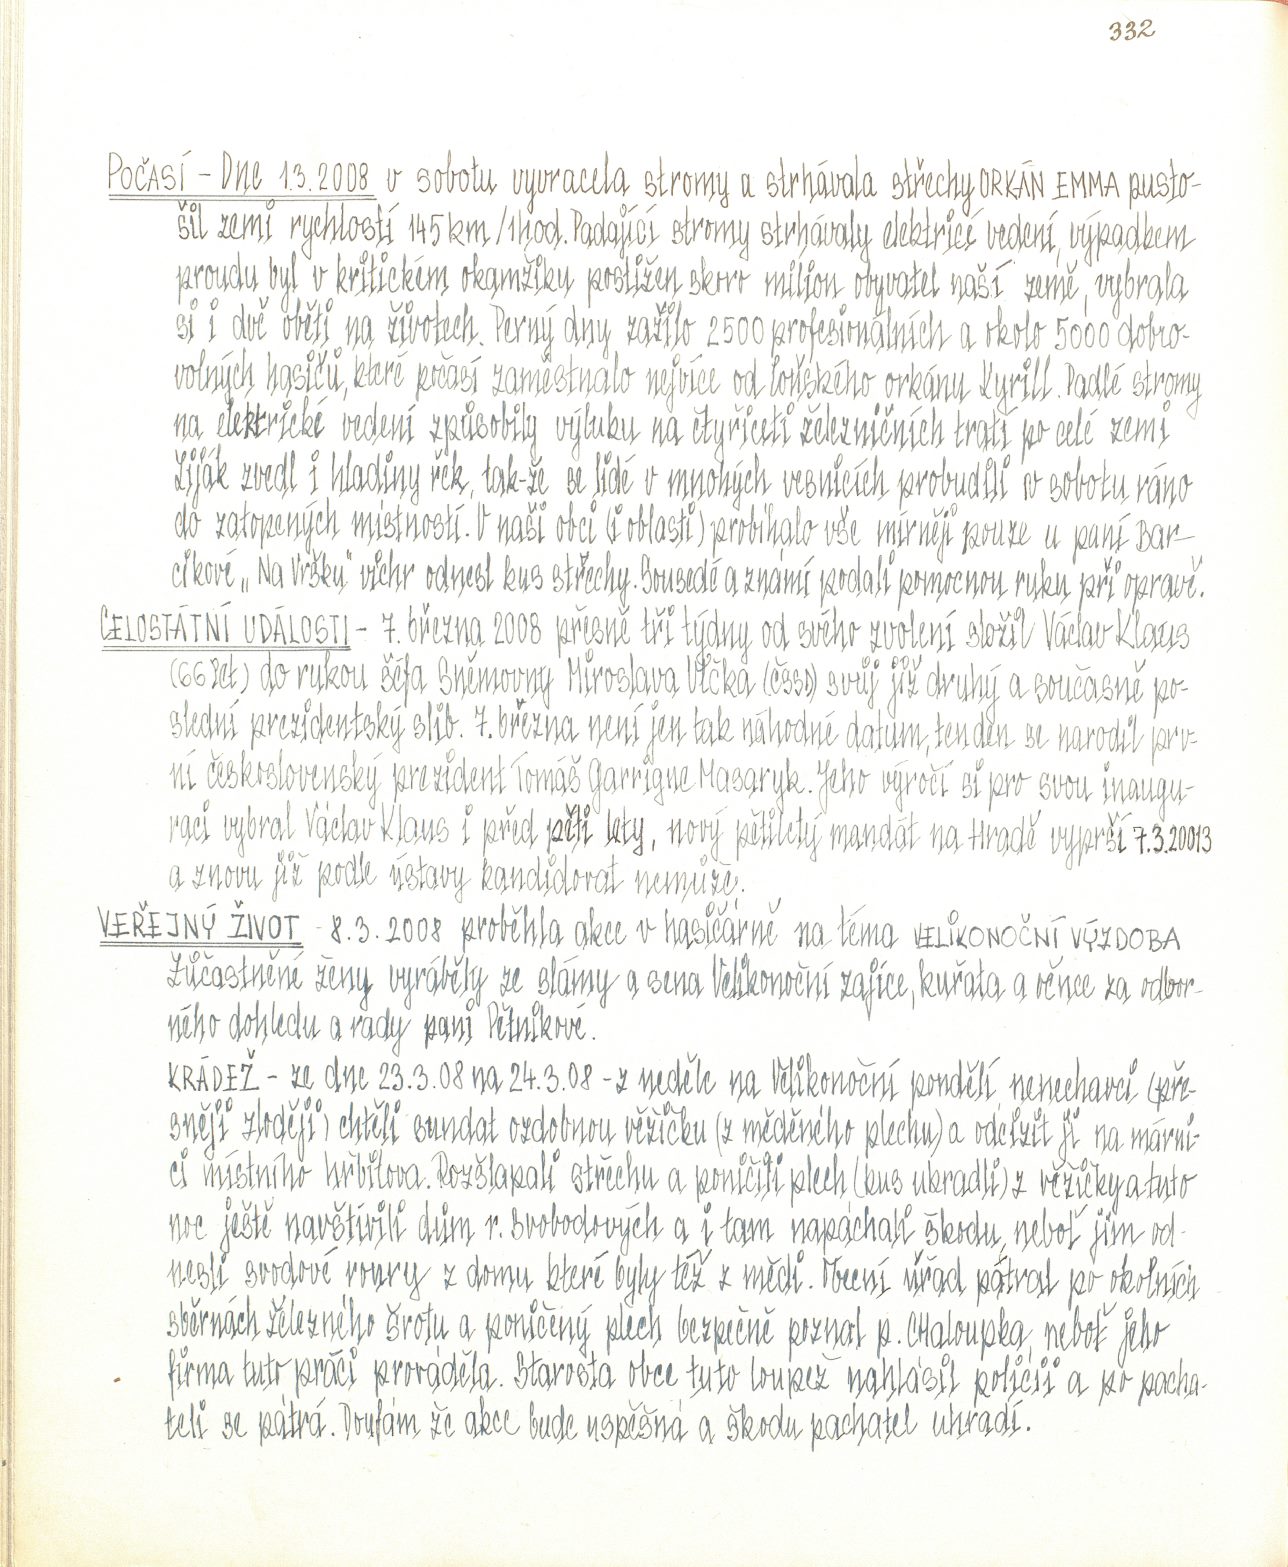 332
POČASÍ - Dne 1.3.2008 v sobotu vyvracela stromy a strhávala střechy ORKÁN EMMA pusto-
šil zemi rychlostí 145 km/1hod. Padající stromy strhávaly elektricé vedení, výpadkem
proudu byl v kritickém okamžiku postižen skoro milion obyvatel naší země, vybrala
si i dvě oběti na životech. Perný dny zažilo 2500 profesionálních a okolo 5000 dobro-
volných hasičů, které počasí zaměstnalo nejvíce od loňského orkánu Kyrill. Padlé stromy
na elektrické vedení způsobily výluku na čtyřiceti železničních tratí po celé zemi
Liják zvedl i hladiny řek, tak-že se lidé v mnohých vesnicích probudili v sobotu ráno
do zatopených místností. V naší obci (i oblasti) probíhalo vše mírněji pouze u paní Bar-
cikové „Na Vršku" vichr odnesl kus střechy. Sousedé a známí podali pomocnou ruku při opravě.
CELOSTÁTNÍ UDÁLOSTI - 7. března 2008 přesně tři týdny od svého zvolení složil Václav Klaus
(66 let) do rukou šéfa Sněmovny Miroslava Vlčka (ČSSD) svůj již druhý a současně po-
slední prezidentský slib. 7. března není jen tak náhodné datum, ten den se narodil prv-
ní československý prezident Tomáš Garrigne Masaryk. Jeho výročí si pro svou inaugu-
raci vybral Václav Klaus i před pěti lety, nový pětiletý mandát na Hradě vyprší 7.3.20013
a znovu již podle ústavy kandidovat nemůže.
VEŘEJNÝ ŽIVOT - 8.3.2008 proběhla akce v hasičárně na téma VELIKONOČNÍ VÝZDOBA
Zůčastněné ženy vyráběly ze slámy a sena Velikonoční zajíce, kuřata a věnce za odbor-
ného dohledu a rady paní Pětníkové.
KRÁDEŽ - ze dne 23.3.08 na 24.3.08 - z neděle na Velikonoční pondělí, nenechavci (pře-
sněji zloději) chtěli sundat ozdobnou věžičku (z měděného plechu) a odcizit ji na márni-
ci místního hřbitova. Rozšlapali střechu a poničili plech (kus ukradli) z věžičky a tuto
noc ještě navštívili dům r. Svobodových a i tam napáchali škodu, neboť jim od-
nesli svodové roury z domu které byly též z mědi. Obecní úřad pátral po okolních
sběrnách železného šrotu a poničený plech bezpečně poznal p. CHaloupka, neboť jeho
firma tuto práci prováděla. Starosta obce tuto loupež nahlásil policii a po pacha-
teli se pátrá. Doufám že akce bude uspěšná a škodu pachatel uhradí.